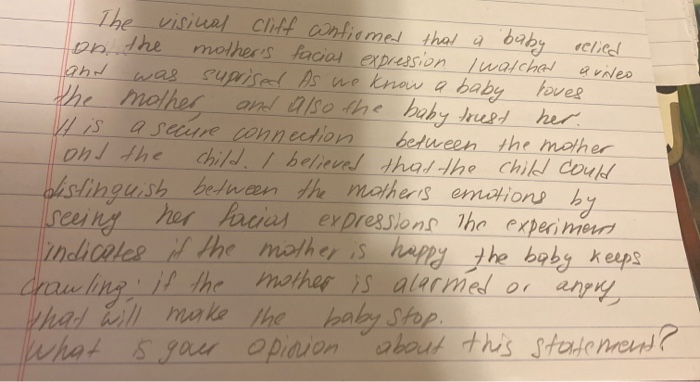 The visiual cliff confiomed that a baby relied
on the mother's facial expression I watched a video
and was suprised As we know a baby loves
the mother, and also the baby trust her.
It is a secure connection between the mother
and the child. I believed that the child could
distinguish between the mother's emotions by
seeing her facial expressions The experiment
indicates if the mother is happy the baby keeps
crawling; if the mother is alarmed or angry,
that will make the baby stop.
What is your opinion about this statement?